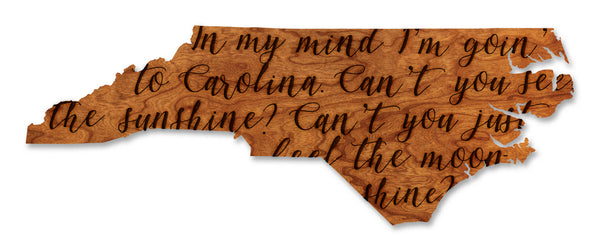 In my mind I'm goin'
to Carolina. Can't you see
the sunshine? Can't you just
feel the moon-
shine?